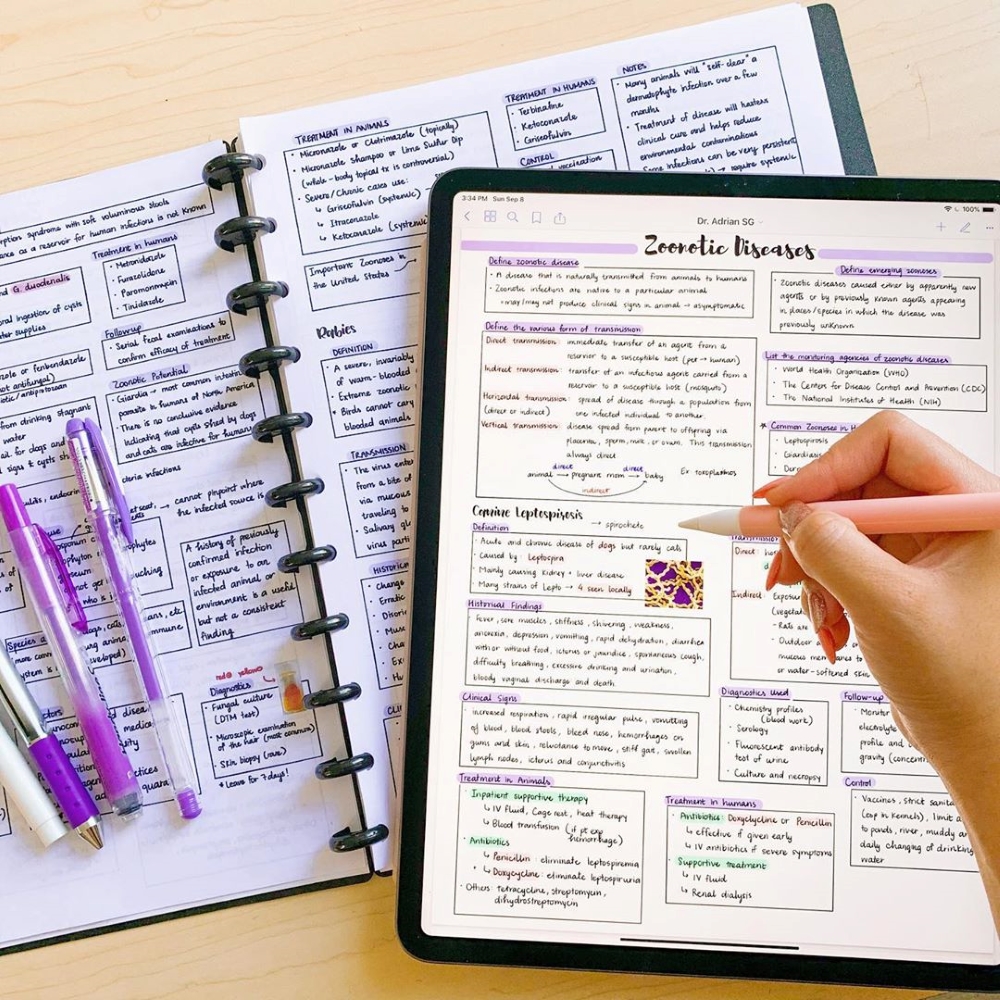 TREATMENT IN ANIMALS
• Micronazole or Clotrimazole (topically)
• Micronazole shampoo or Lime Sulfur Dip
(whole-body topical tx is controversial)
• Severe/Chronic cases use:
↳ Griseofulvin (systemic)
↳ Itraconazole
↳ Ketoconazole (systemic)
Important Zoonoses in the
United States
TREATMENT IN HUMANS
• Terbinafine
• Ketoconazole
• Griseofulvin
CONTROL
vaccination
NOTES
• Many animals will "self-clear" a
dermatophyte infection over a few
months
• Treatment of disease will hasten
clinical cure and helps reduce
environmental contaminations
• Some infections can be very persistent
require systemic
Rabies
DEFINITION
• A severe, invariably
of warm-blooded
• Extreme zoonotic
* Birds cannot carry
blooded animals
TRANSMISSION
• The virus
from a bite of
via mucous
traveling to
• Salivary
virus
syndrome with soft voluminous stools
as a reservoir for human infections is not known
G. duodenalis
oral ingestion of cysts
supplies
Treatment in humans
• Metronidazole
• Furazolidone
• Paromomycin
• Tinidazole
Followup
• Serial fecal examinations to
confirm efficacy of treatment
or fenbendazole
antifungal)
from drinking stagnant
water
Zoonotic Potential
• Giardia → most common intestinal
parasite in humans of North America
• There is no conclusive evidence
indicating that cysts shed by dogs
and cats are infective for humans
→ cannot pinpoint where
the infected source is
A history of previously
confirmed infection
or exposure to an
infected animal or
environment is a useful
but not a consistent
finding
red @ yellow
Diagnostics
• Fungal culture
(DTM test)
• Microscopic examination
of the hair (most common)
• Skin biopsy (rare)
* Leave for 7 days!
3:34 PM Sun Sep 8
100%
Dr. Adrian SG
Zoonotic Diseases
Define zoonotic disease
• A disease that is naturally transmitted from animals to humans
• Zoonotic infections are native to a particular animal
• may/may not produce clinical signs in animal → asymptomatic
Define emerging zoonoses
• Zoonotic diseases caused either by apparently new
agents or by previously known agents appearing
in places/species in which the disease was
previously unknown
Define the various form of transmission
Direct transmission: immediate transfer of an agent from a
reservoir to a susceptible host (pet → human)
Indirect transmission: transfer of an infectious agent carried from a
reservoir to a susceptible host (mosquito)
Horizontal transmission: spread of disease through a population from
(direct or indirect) one infected individual to another.
Vertical transmission: disease spread from parent to offspring via
placenta, sperm, milk, or ovum. This transmission
always direct
direct direct
animal → pregnant mom → baby Ex toxoplasmosis
indirect
List the monitoring agencies of zoonotic diseases
• World Health Organization (WHO)
• The Centers for Disease Control and Prevention (CDC)
• The National Institutes of Health (NIH)
* Common Zoonoses in
• Leptospirosis
• Giardiasis
Canine Leptospirosis → spirochete
Definition
• Acute and chronic disease of dogs but rarely cats
• Caused by: Leptospira
• Mainly causing kidney + liver disease
• Many strains of Lepto → 4 seen locally
Transmission
Direct:
Indirect:
• Rats are
• Outdoor
mucous membranes to
or water-softened skin
Historical Findings
• fever, sore muscles, stiffness, shivering, weakness,
anorexia, depression, vomitting, rapid dehydration, diarrhea
with or without food, icterus or jaundice, spontaneous cough,
difficulty breathing, excessive drinking and urination,
bloody vaginal discharge and death.
Clinical Signs
• increased respiration, rapid irregular pulse, vomitting
of blood, bloody stools, bloody nose, hemorrhages on
gums and skin, reluctance to move, stiff gait, swollen
lymph nodes, icterus and conjunctivitis
Diagnostics Used
• Chemistry profiles
(blood work)
• Serology
• Fluorescent antibody
test of urine
• Culture and necropsy
Follow-up
• Monitor
electrolyte
profile and
gravity
Treatment in Animals
• Inpatient supportive therapy
↳ IV Fluid, Cage rest, heat therapy
↳ Blood transfusion (if pt exp
hemorrhage)
• Antibiotics
↳ Penicillin: eliminate leptospiremia
↳ Doxycycline: eliminate leptospiruria
• Others: tetracycline, streptomycin,
dihydrostreptomycin
Treatment in humans
• Antibiotics: Doxycycline or Penicillin
↳ effective if given early
↳ IV antibiotics if severe symptoms
• Supportive treatment
↳ IV fluid
↳ Renal dialysis
Control
• Vaccines, strict
(esp in kennels), limit
to ponds, river, muddy
daily changing of drinking
water